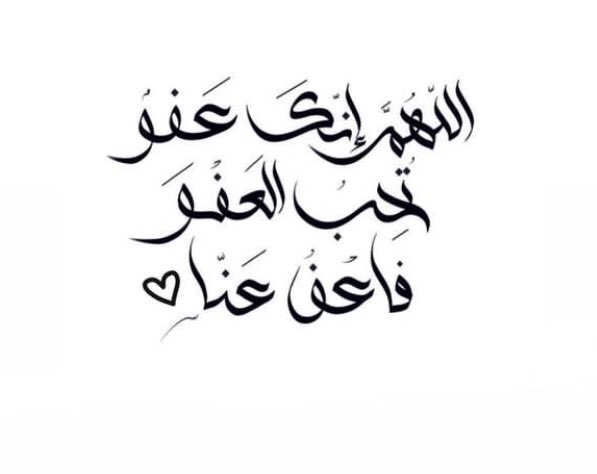 اللّهُمَّ إنّكَ عَفوُ
تُحِبُ العَفْوَ
فَاعْفُ عَنّا